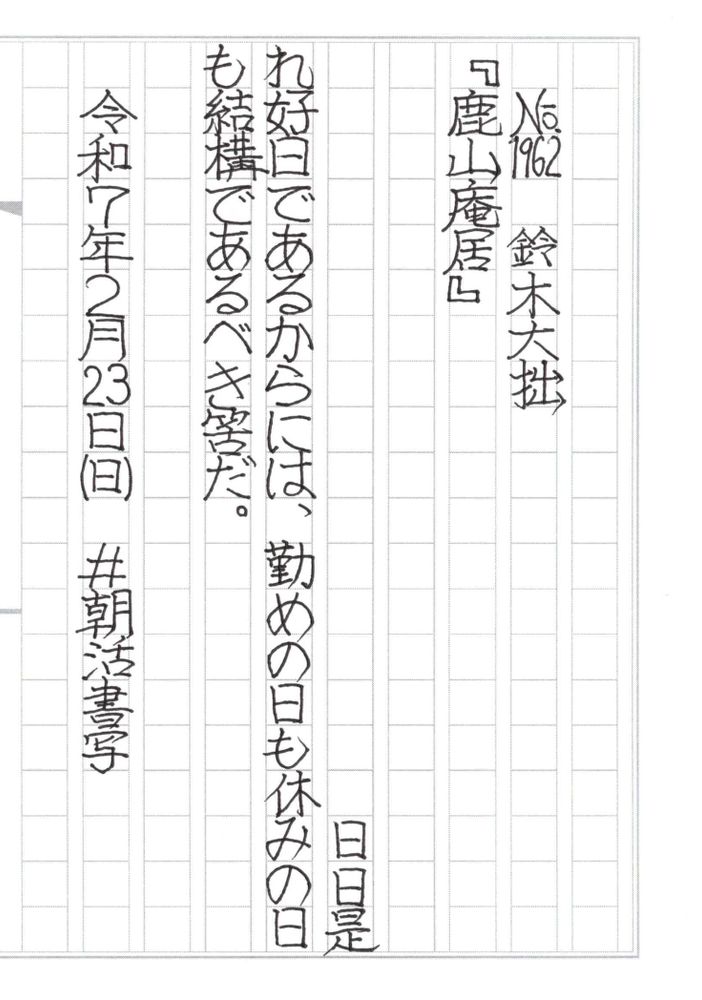 No.1962　鈴木大拙
『鹿山庵居』
日日是
れ好日であるからには、勤めの日も休みの日
も結構であるべき筈だ。
令和7年2月23日(日)　#朝活書写